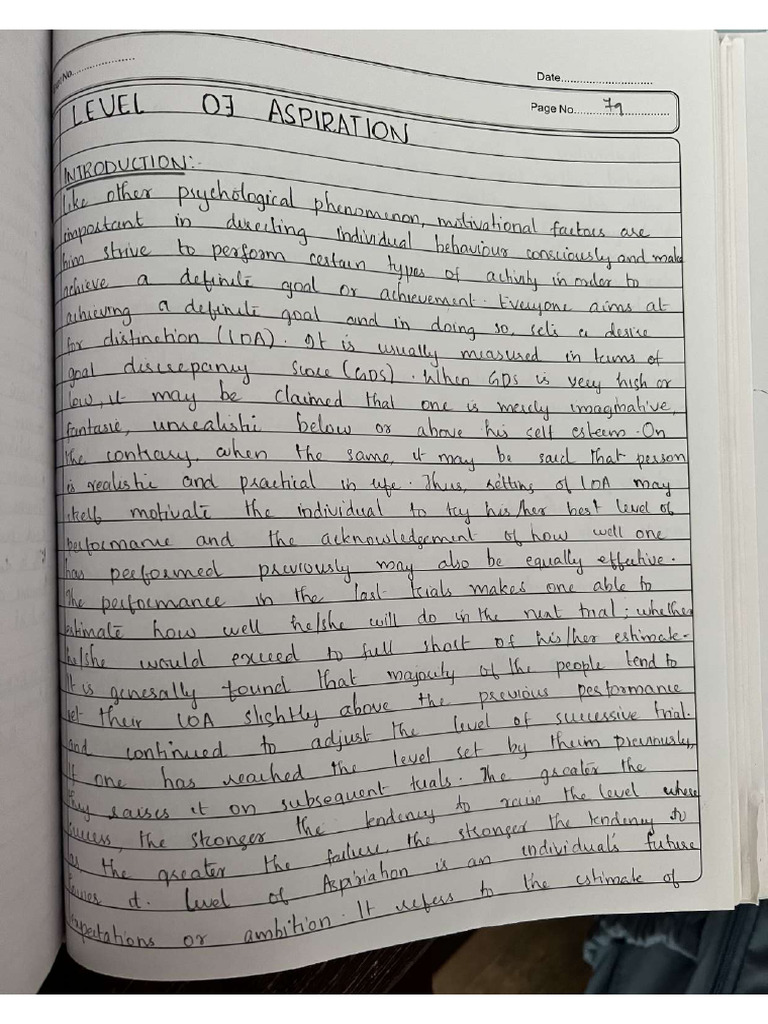 No.
Date
Page No. 79
LEVEL OF ASPIRATION
INTRODUCTION:-
Like other psychological phenomenon, motivational factors are
important in directing individual behaviour consciously and make
him strive to perform certain types of activity in order to
achieve a definite goal or achievement. Everyone aims at
achieving a definite goal and in doing so, sets a desire
for distinction (LOA). It is usually measured in terms of
goal discrepancy since (GDS). When GDS is very high or
low, it may be claimed that one is merely imagmative,
fantasie, unrealistic below or above his self esteem. On
the contrary, when the same, it may be said that person
is realistic and practical in life. Thus, setting of LOA may
itself motivate the individual to try his/her best level of
performance and the acknowledgement of how well one
has performed previously may also be equally effective.
The performance in the last trials makes one able to
estimate how well he/she will do in the next trial; whether
he/she would exceed to full short of his/her estimate.
It is generally found that majority of the people tend to
set their LOA slightly above the previous performance
and continued to adjust the level of successive trial.
If one has reached the level set by theim previously,
they raises it on subsequent trials. The greater the
success, the stronger the tendency to raise the level where
as the greater the failure, the stronger the tendency to
lower it. Level of Aspiriation is an individual's future
expectations or ambition. It refers to the estimate of